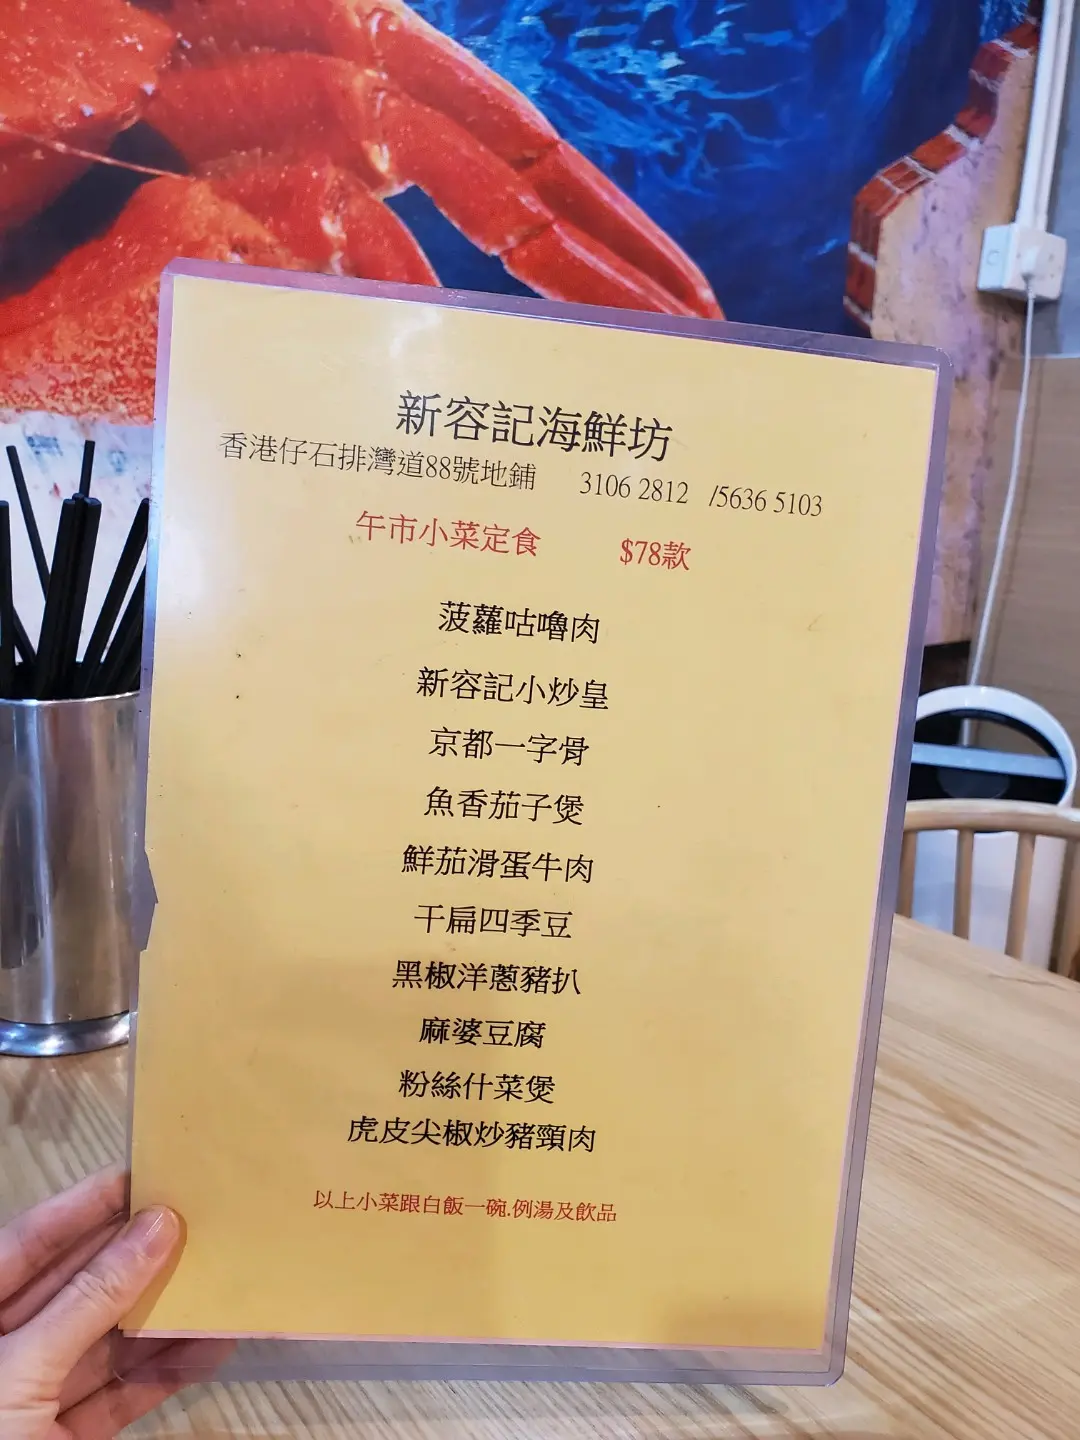 新容記海鮮坊
香港仔石排灣道88號地鋪 3106 2812 /5636 5103
午市小菜定食 $78款
菠蘿咕嚕肉
新容記小炒皇
京都一字骨
魚香茄子煲
鮮茄滑蛋牛肉
干扁四季豆
黑椒洋蔥豬扒
麻婆豆腐
粉絲什菜煲
虎皮尖椒炒豬頸肉
以上小菜跟白飯一碗.例湯及飲品